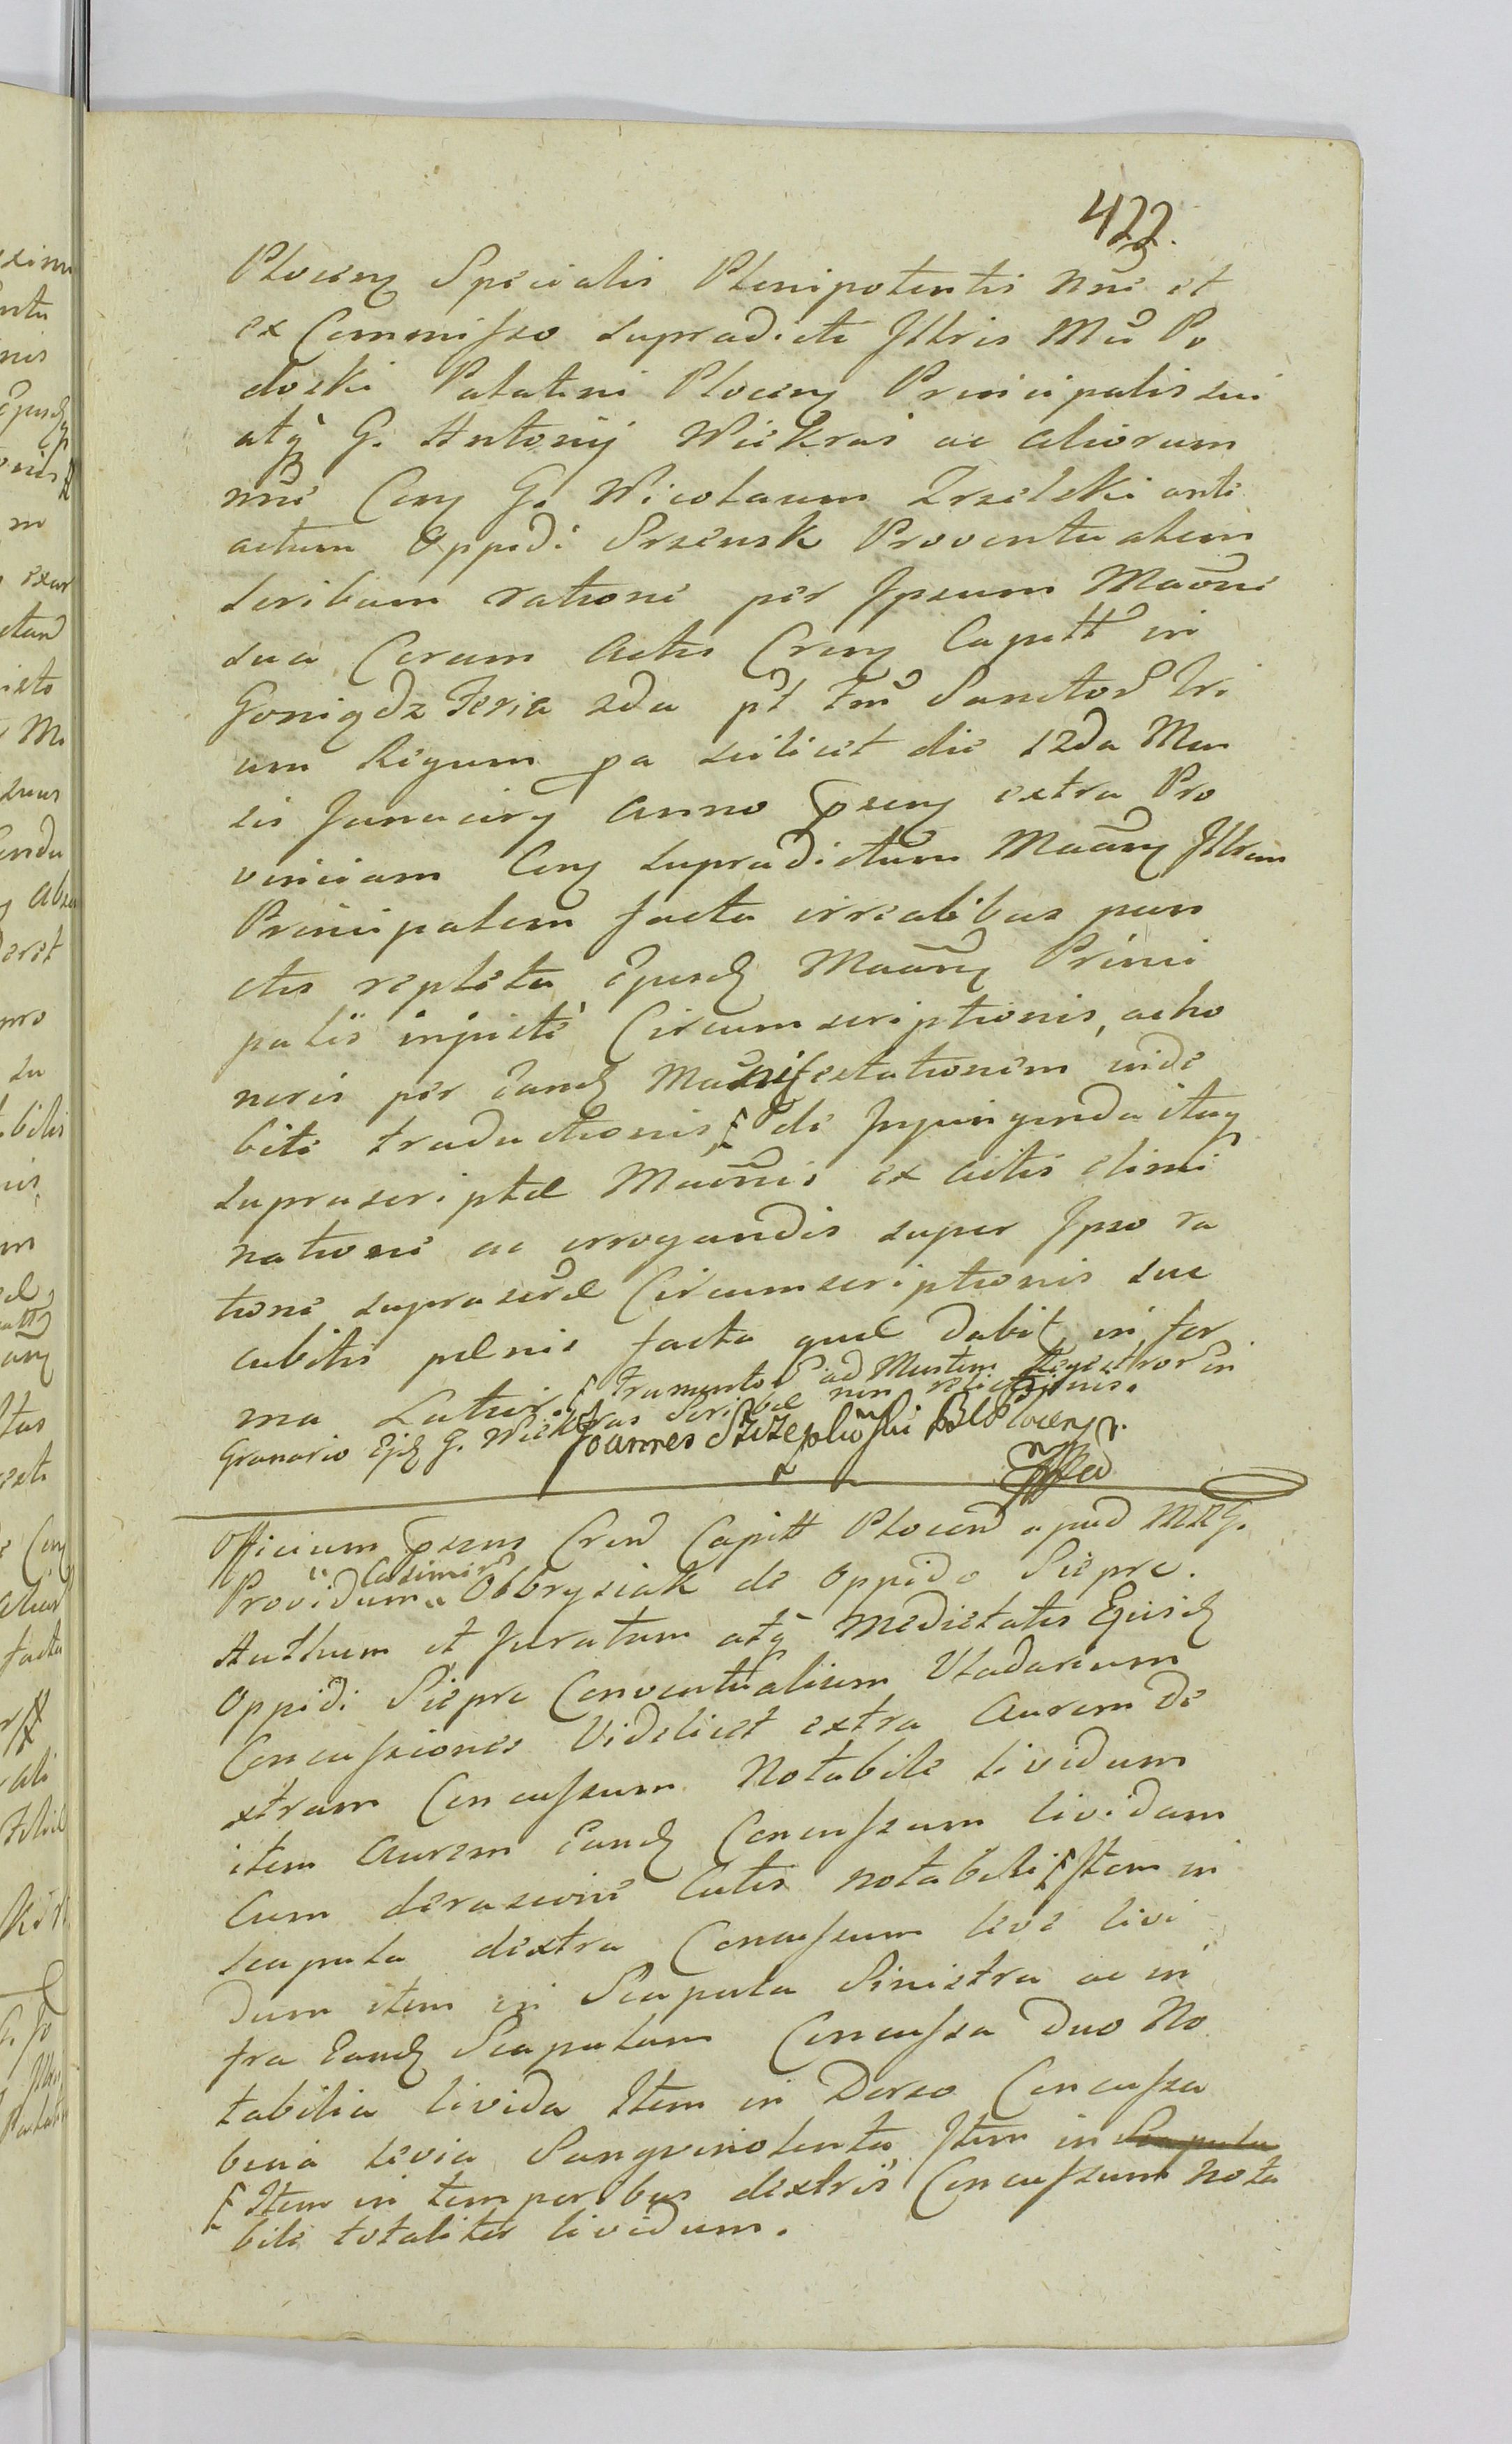 422.
Plocen Specialis Plenipotentis nne et
ex Commisso supradicti Illris Mci Po
doski Palatini Plocen Principalis sui
atq G. Antonij Wickras ac aliorum
nne Con G. Nicolaum Zrzelski anti
actum Oppidi Srzensk Proventualem
Scribam ratione per Ipsum Maõne
sua Coram Actis Cren Capitt in
Goniądz Feria 2da pt Fm Sanctor Tri
um Regum pa scilicet die 12da Men
sis Januarij Anno psen extra Pro
vinciam Con supradictum Maãn Illrem
Principalem facta irrealibus pun
ctis repleta Ejusd Maãn Princi
palis injuste Circumscriptionis, ac ho
noris per Eand Manifestationem inde
bite traductionis, de Injungenda itaq
suprascriptæ Maõnis ex actis elimi
natione ac irrogandis super Ipso ra
tione suprascræ Circumscriptionis suc
cubitis pænis facta quæ dabit in for
ma Latiori. Frumentor ad Mentem Regestror in
Granario Ejd G. Wickras Scribæ non relictionis.
Joannes Szczepliński BCPlocen
Officium psens Cren Capitt Plocen apud MRG.
Providum Casimir Obbrysiak de Oppido Sieprc.
Authum et Juratum atq Medietatis Ejusd
Oppidi Sieprc Conventualium Vladarium
Concussiones Videlicet extra Aurem De
xtram Concussum Notabile lividum
item Aurem Eand Concussam lividam
Cum derasione Cutis notabili Item in
scapula dextra Concussum leve livi
dum item in Scapula Sinistra ac in
fra Eand Scapulam Concussa Duo No
tabilia livida Item in Dorso Concussa
bina levia Sangvinolenta Item in Scapula
Item in temporibus dextris Concussum nota
bile totaliter lividum.